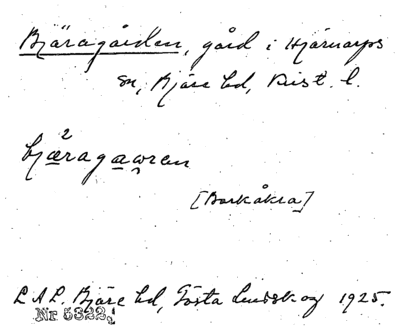 Bjäragården, gård i Hjärnarps
sn, Bjäre hd, Krist. l.
bjäragawren
2
[Barkåkra]
L.A.L. Bjäre hd, Gösta Lindskog 1925.
Nr 5322.